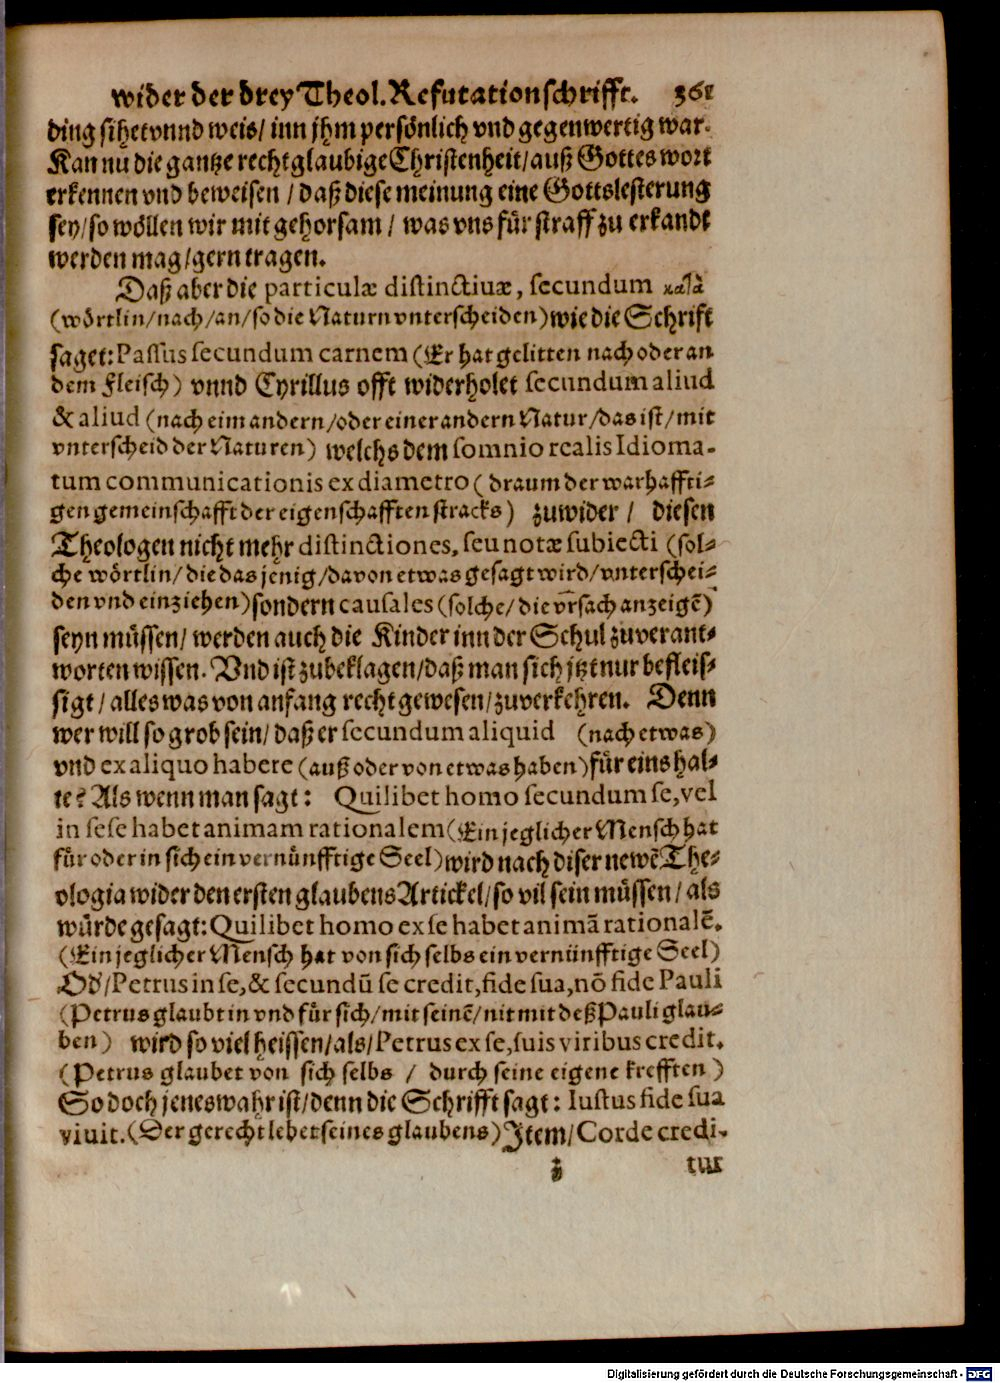 wider der drey Theol. Refutationschrifft. 361
ding sihet vnnd weis / inn jhm persönlich vnd gegenwertig war.
Kan nū die gantze rechtglaubige Christenheit / auß Gottes wort
erkennen vnd beweisen / daß diese meinung eine Gottslesterung
sey / so wöllen wir mit gehorsam / was vns für straff zu erkandt
werden mag / gern tragen.
Daß aber die particulæ distinctiuæ, secundum κατὰ
(wörtlin / nach / an / so die Naturn vnterscheiden) wie die Schrift
saget: Passus secundum carnem (Er hat gelitten nach oder an
dem Fleisch) vnnd Cyrillus offt widerholet secundum aliud
& aliud (nach eim andern / oder einer andern Natur / das ist / mit
vnterscheid der Naturen) welchs dem somnio realis Idioma-
tum communicationis ex diametro (draum der warhaffti-
gen gemeinschafft der eigenschafften stracks) zuwider / diesen
Theologen nicht mehr distinctiones, seu notæ subiecti (sol-
che wörtlin / die das jenig / davon etwas gesagt wird / vnterschei-
den vnd einziehen) sondern causales (solche / die vrsach anzeigē)
seyn müssen / werden auch die Kinder inn der Schul zuverant-
worten wissen. Vnd ist zubeklagen / daß man sich jtzt nur befleis-
sigt / alles was von anfang recht gewesen / zuverkehren. Denn
wer will so grob sein / daß er secundum aliquid (nach etwas)
vnd ex aliquo habere (auß oder von etwas haben) für eins hal-
te? Als wenn man sagt: Quilibet homo secundum se, vel
in sese habet animam rationalem (Ein jeglicher Mensch hat
für oder in sich ein vernünfftige Seel) wird nach diser newē The-
ologia wider den ersten glaubens Artickel / so vil sein müssen / als
würde gesagt: Quilibet homo ex se habet animā rationalē.
(Ein jeglicher Mensch hat von sich selbs ein vernünfftige Seel)
Od' / Petrus in se, & secundū se credit, fide sua, nō fide Pauli
(Petrus glaubt in vnd für sich / mit seinē / nit mit deß Pauli glau-
ben) wird so viel heissen / als / Petrus ex se, suis viribus credit.
(Petrus glaubet von sich selbs / durch seine eigene krefften)
So doch jenes wahr ist / denn die Schrifft sagt: Iustus fide sua
viuit. (Der gerecht lebet seines glaubens) Item / Corde credi-
z tur
Digitalisierung gefördert durch die Deutsche Forschungsgemeinschaft - DFG